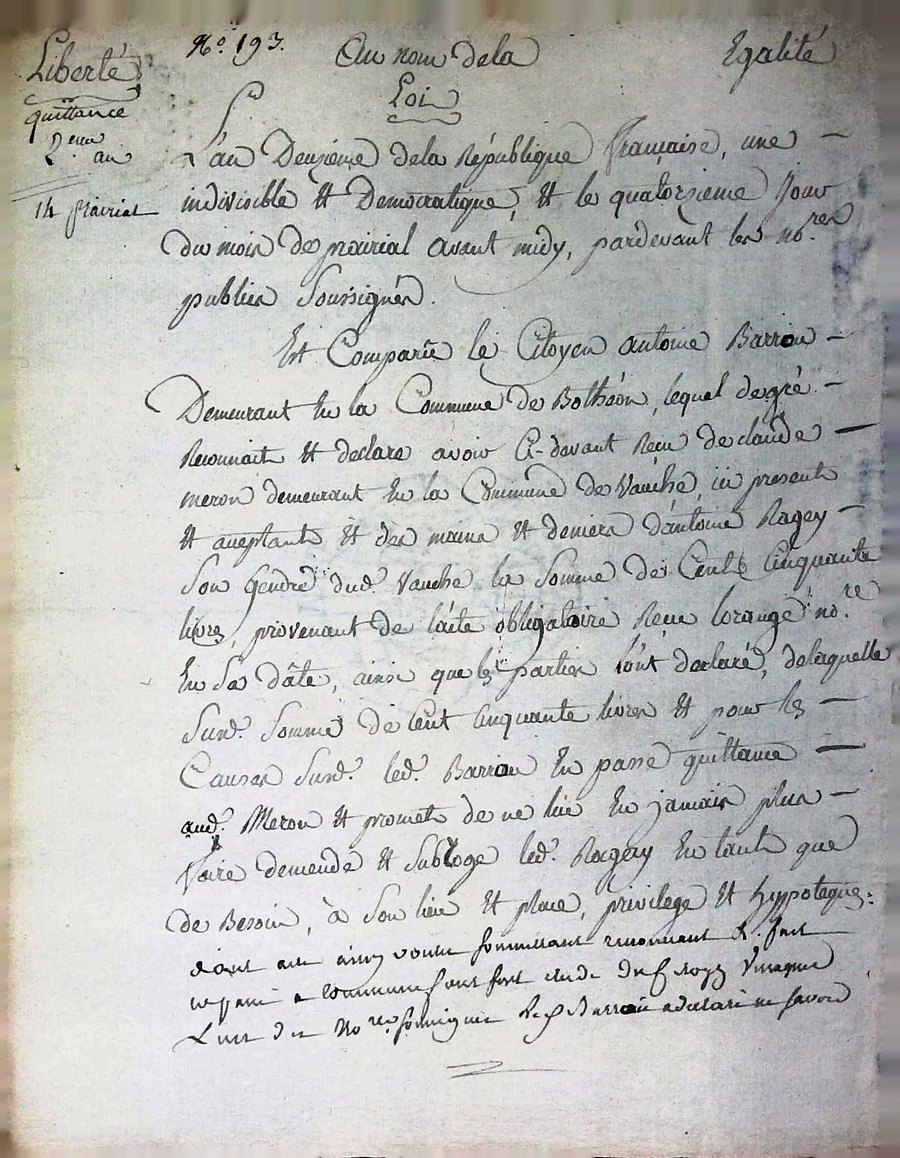 Liberté
N.° 193.
Au nom dela
Egalité
Loi
quittance
2.eme an
14 prairial
L'an Deuzième dela République française, une
indivisible et Democratique, et le quatorzieme Jour
du mois de prairial avant midy, pardevant les no.res
publics Soussignés.
Est Comparû le Citoyen antoine Barrou
Demeurant En la Commune de Bothéon, lequel de gré
Reconnait et declare avoir Ci-devant Recu de claude
meron demeurant En la Commune de Vauche, ici present
et aceptant et des mains et deniers d'antoine Ragey
Son Gendre dud. Vauche la Somme de Cent Cinquante
livres, provenant de l'acte obligatoire Recu Lorange no.re
En Sa dâte, ainsi que les parties l'ont declaré, delaquelle
Susd. Somme de Cent Cinquante livres et pour les
Causes Susd. led. Barrou En passe quittance
aud. Meron et promet de ne lui En jamais plus
faire demende et Subroge led. Ragey En tant que
de Besoin, à Son lieu et place, privilege et hyppoteque.
dont acte ainsy voulu soummettant renonceant &. fait
Lun des No.res soussignés &. Barrou a déclaré ne savoir